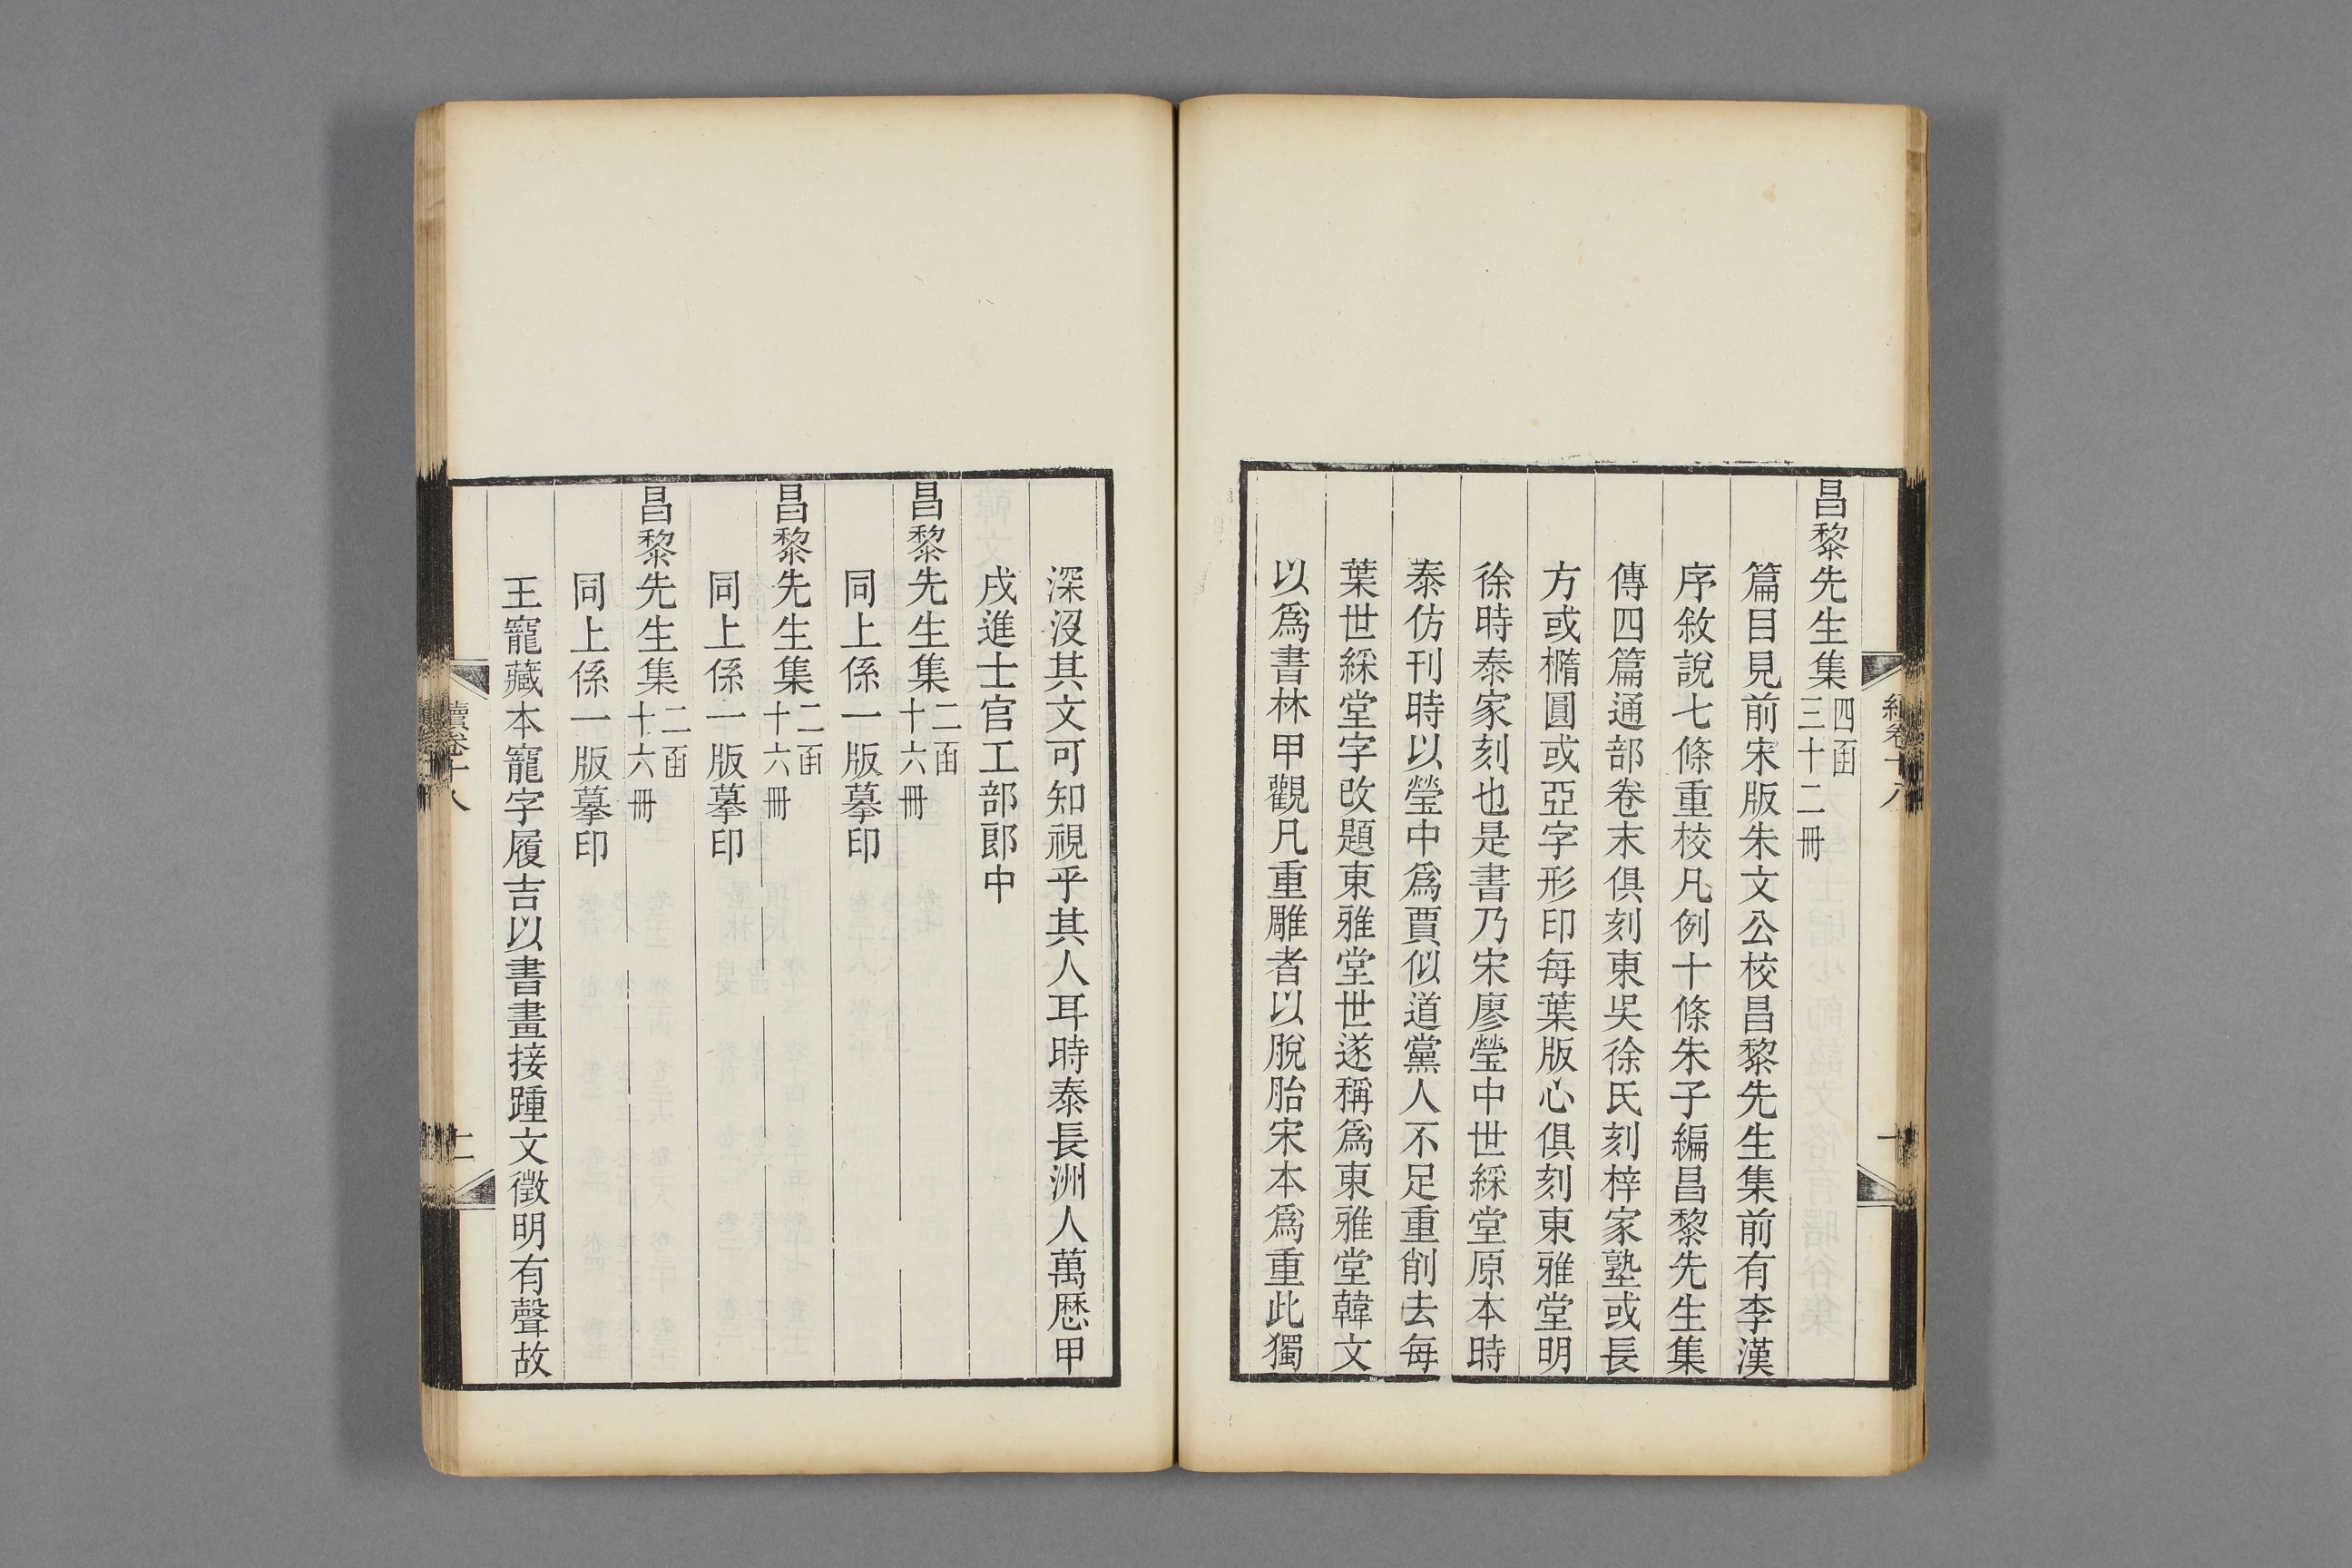 昌黎先生集四函三十二冊
篇目見前宋版朱文公校昌黎先生集前有李漢
序敘說七條重校凡例十條朱子編昌黎先生集
傳四篇通部卷末俱刻東吳徐氏刻梓家塾或長
方或橢圓或亞字形印每葉版心俱刻東雅堂明
徐時泰家刻也是書乃宋廖瑩中世綵堂原本時
泰仿刊時以瑩中爲賈似道黨人不足重削去每
葉世綵堂字改題東雅堂世遂稱爲東雅堂韓文
以爲書林甲觀凡重雕者以脫胎宋本爲重此獨
深沒其文可知視乎其人耳時泰長洲人萬厯甲
戌進士官工部郎中
昌黎先生集二函十六冊
同上係一版摹印
昌黎先生集二函十六冊
同上係一版摹印
昌黎先生集二函十六冊
同上係一版摹印
王寵藏本寵字履吉以書畫接踵文徵明有聲故
續卷十八